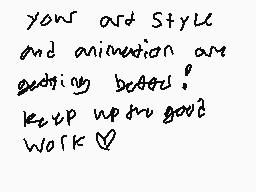 your art style
and animation are
getting better!
keep up the good
work ♡